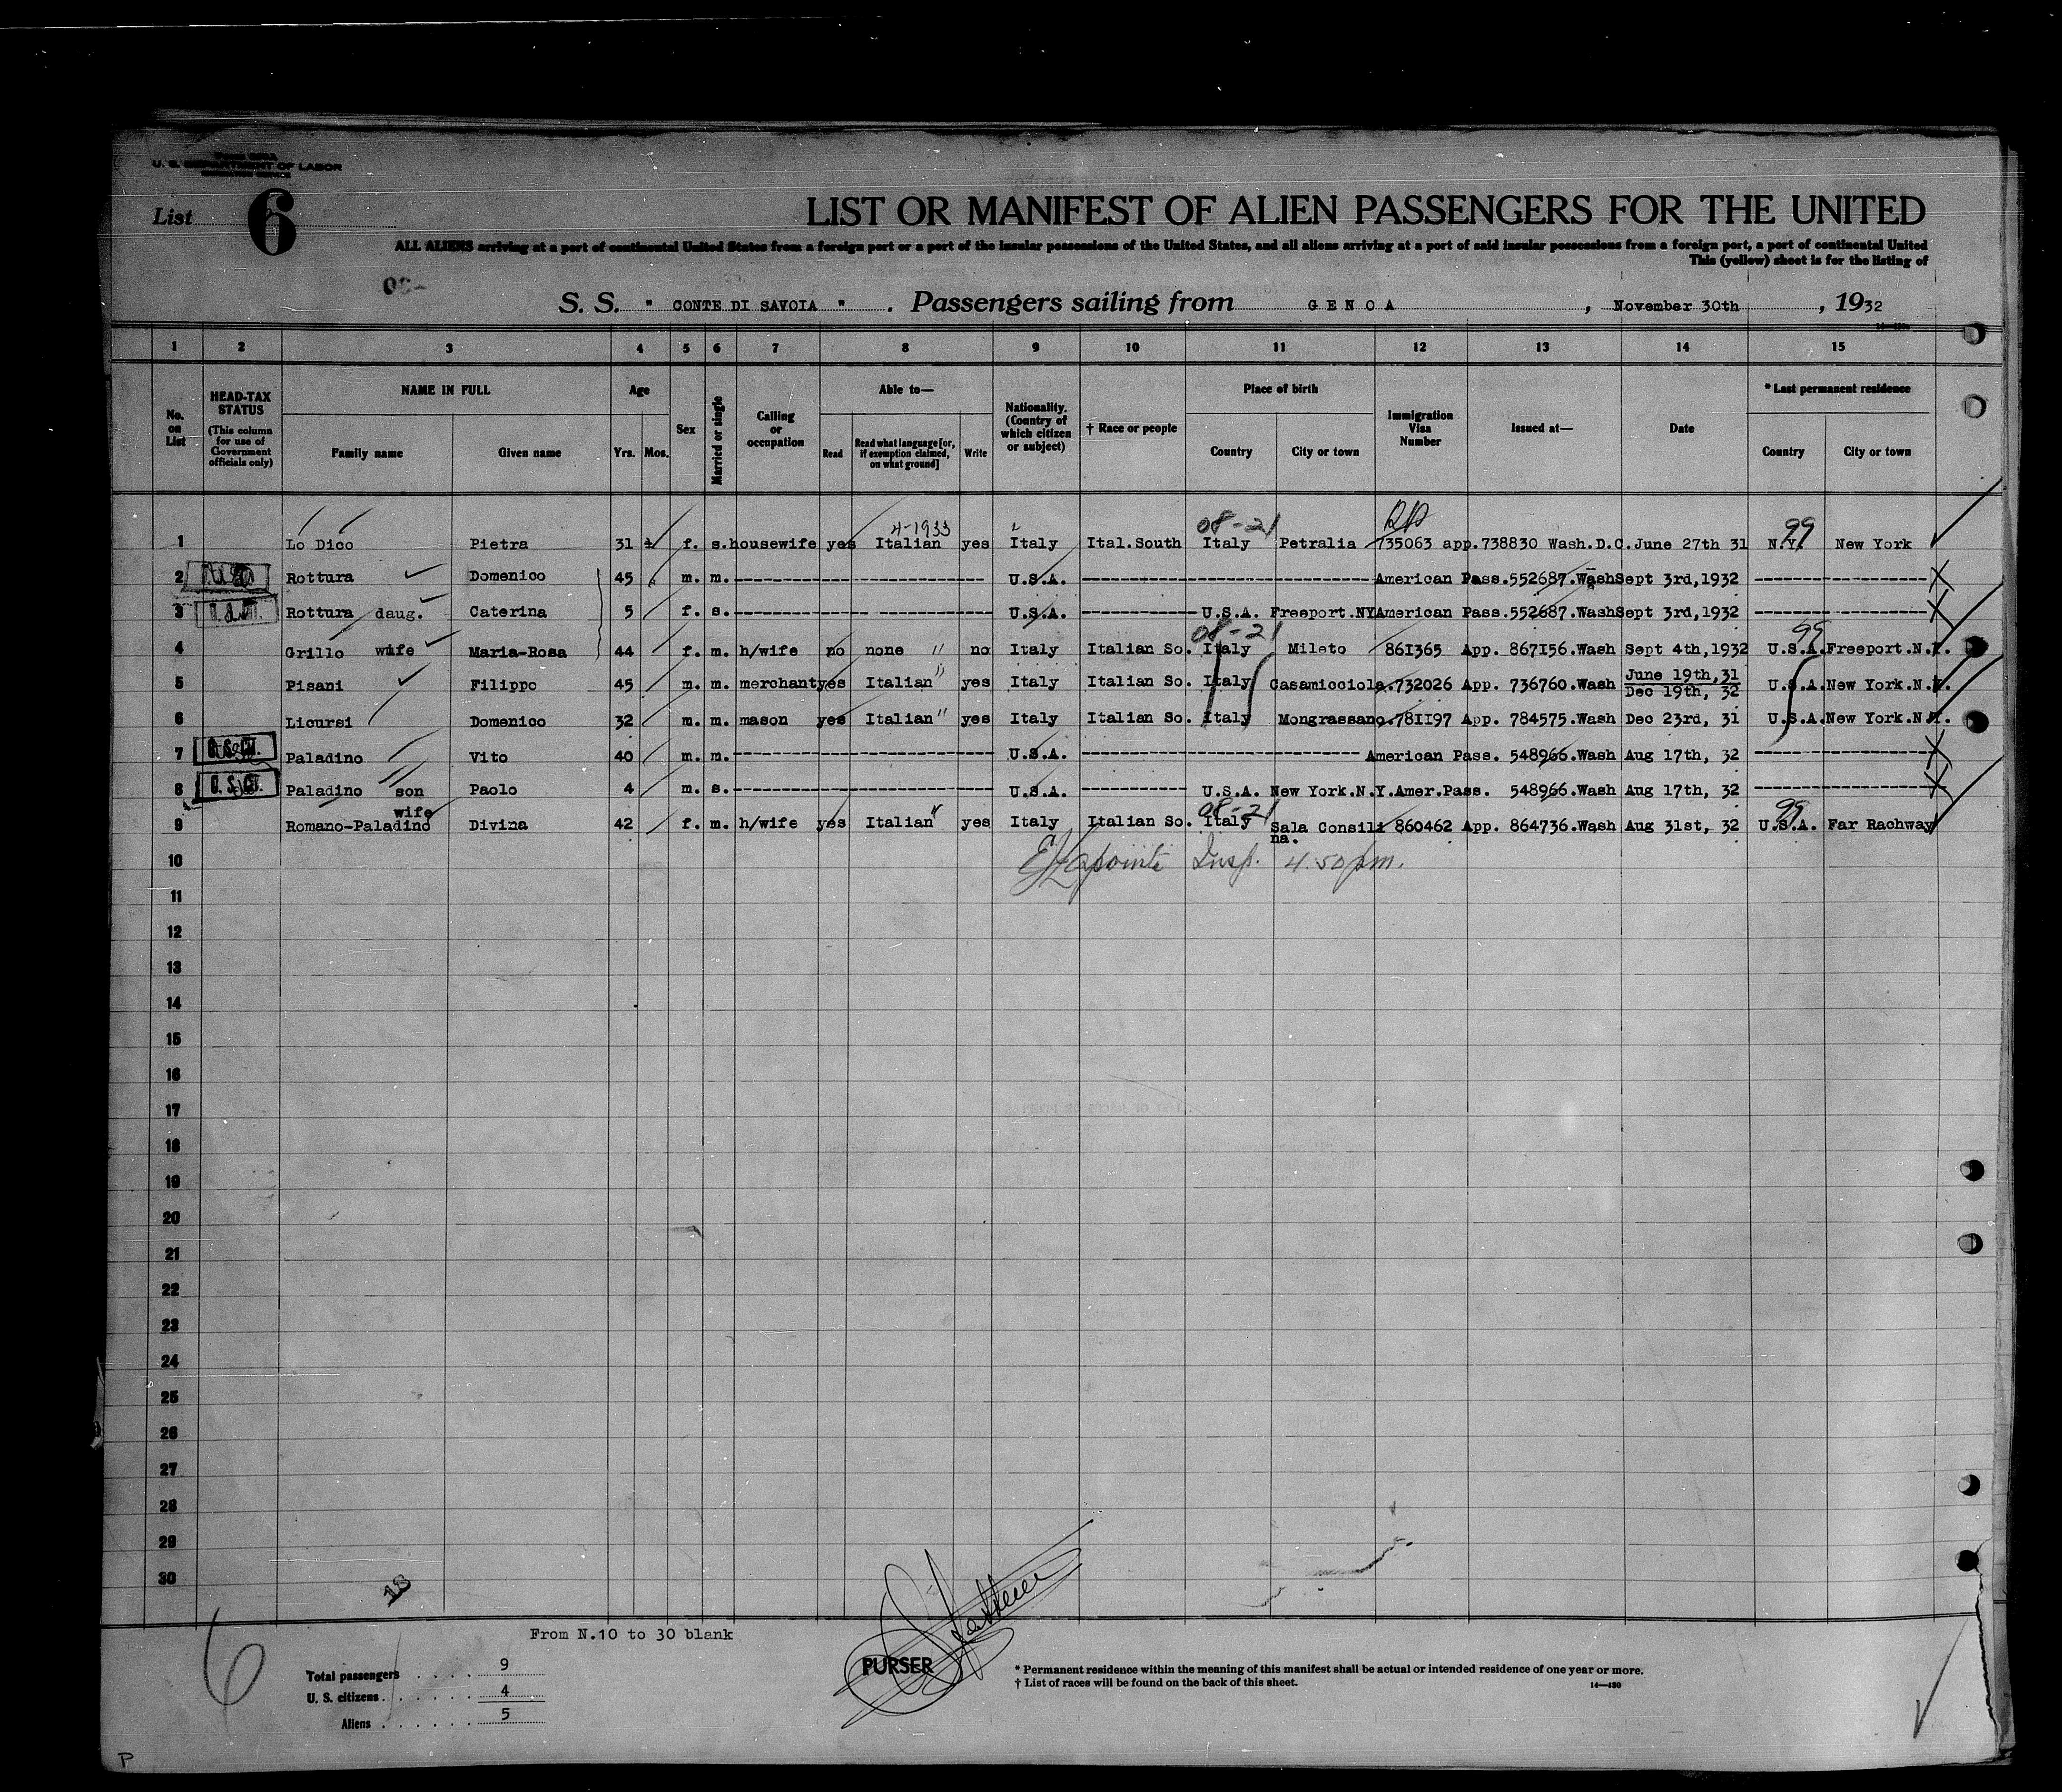 U. S. DEPARTMENT OF LABOR
List 6
LIST OR MANIFEST OF ALIEN PASSENGERS FOR THE UNITED
ALL ALIENS arriving at a port of continental United States from a foreign port or a port of the insular possessions of the United States, and all aliens arriving at a port of said insular possessions from a foreign port, a port of continental United
This (yellow) sheet is for the listing of
S. S. " CONTE DI SAVOIA " . Passengers sailing from GENOA , November 30th , 1932
1 2 3 4 5 6 7 8 9 10 11 12 13 14 15
No. on List
HEAD-TAX STATUS (This column for use of Government officials only)
NAME IN FULL Family name Given name
Age Yrs. Mos.
Sex
Married or single
Calling or occupation
Able to— Read Read what language [or, if exemption claimed, on what ground] Write
Nationality. (Country of which citizen or subject)
† Race or people
Place of birth Country City or town
Immigration Visa Number
Issued at—
Date
* Last permanent residence Country City or town
4-1933 08-21 99
1 Lo Dico Pietra 31 f. s. housewife yes Italian yes Italy Ital.South Italy Petralia 735063 app.738830 Wash.D.C. June 27th 31 N.Y. New York
2 Rottura Domenico 45 m. m. U.S.A. American Pass.552687.Wash Sept 3rd,1932
3 Rottura daug. Caterina 5 f. s. U.S.A. U.S.A. Freeport.NY American Pass.552687.Wash Sept 3rd,1932
08-21 99
4 Grillo wife Maria-Rosa 44 f. m. h/wife no none " no Italy Italian So. Italy Mileto 861365 App. 867156.Wash Sept 4th,1932 U.S.A. Freeport.N.Y.
5 Pisani Filippo 45 m. m. merchant yes Italian " yes Italy Italian So. Italy Casamicciola.732026 App. 736760.Wash June 19th,31 Dec 19th, 32 U.S.A. New York.N.Y.
6 Licursi Domenico 32 m. m. mason yes Italian " yes Italy Italian So. Italy Mongrassano.781197 App. 784575.Wash Dec 23rd, 31 U.S.A. New York.N.Y.
7 U.S.CIT. Paladino Vito 40 m. m. U.S.A. American Pass. 548966.Wash Aug 17th, 32
8 U.S.CIT. Paladino son Paolo 4 m. s. U.S.A. U.S.A. New York.N.Y. Amer.Pass. 548966.Wash Aug 17th, 32
wife 08-21 99
9 Romano-Paladino Divina 42 f. m. h/wife yes Italian " yes Italy Italian So. Italy Sala Consilina. 860462 App. 864736.Wash Aug 31st, 32 U.S.A. Far Rachway
10 Lapointe Insp. 4.50 pm.
11
12
13
14
15
16
17
18
19
20
21
22
23
24
25
26
27
28
29
30
From N.10 to 30 blank
6
Total passengers 9
U. S. citizens 4
Aliens 5
PURSER
* Permanent residence within the meaning of this manifest shall be actual or intended residence of one year or more.
† List of races will be found on the back of this sheet.
14—430
P